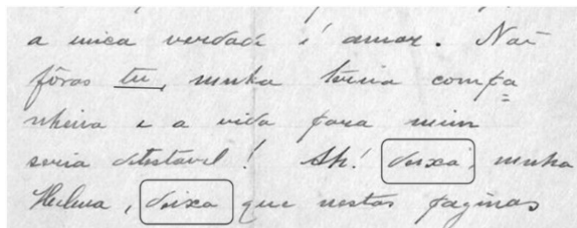 a unica verdade é amar. Não
fôras tu, minha terna compa=
nheira e a vida para mim
seria detestavel! Ah! deixa, minha
Helena, deixa que nestas paginas